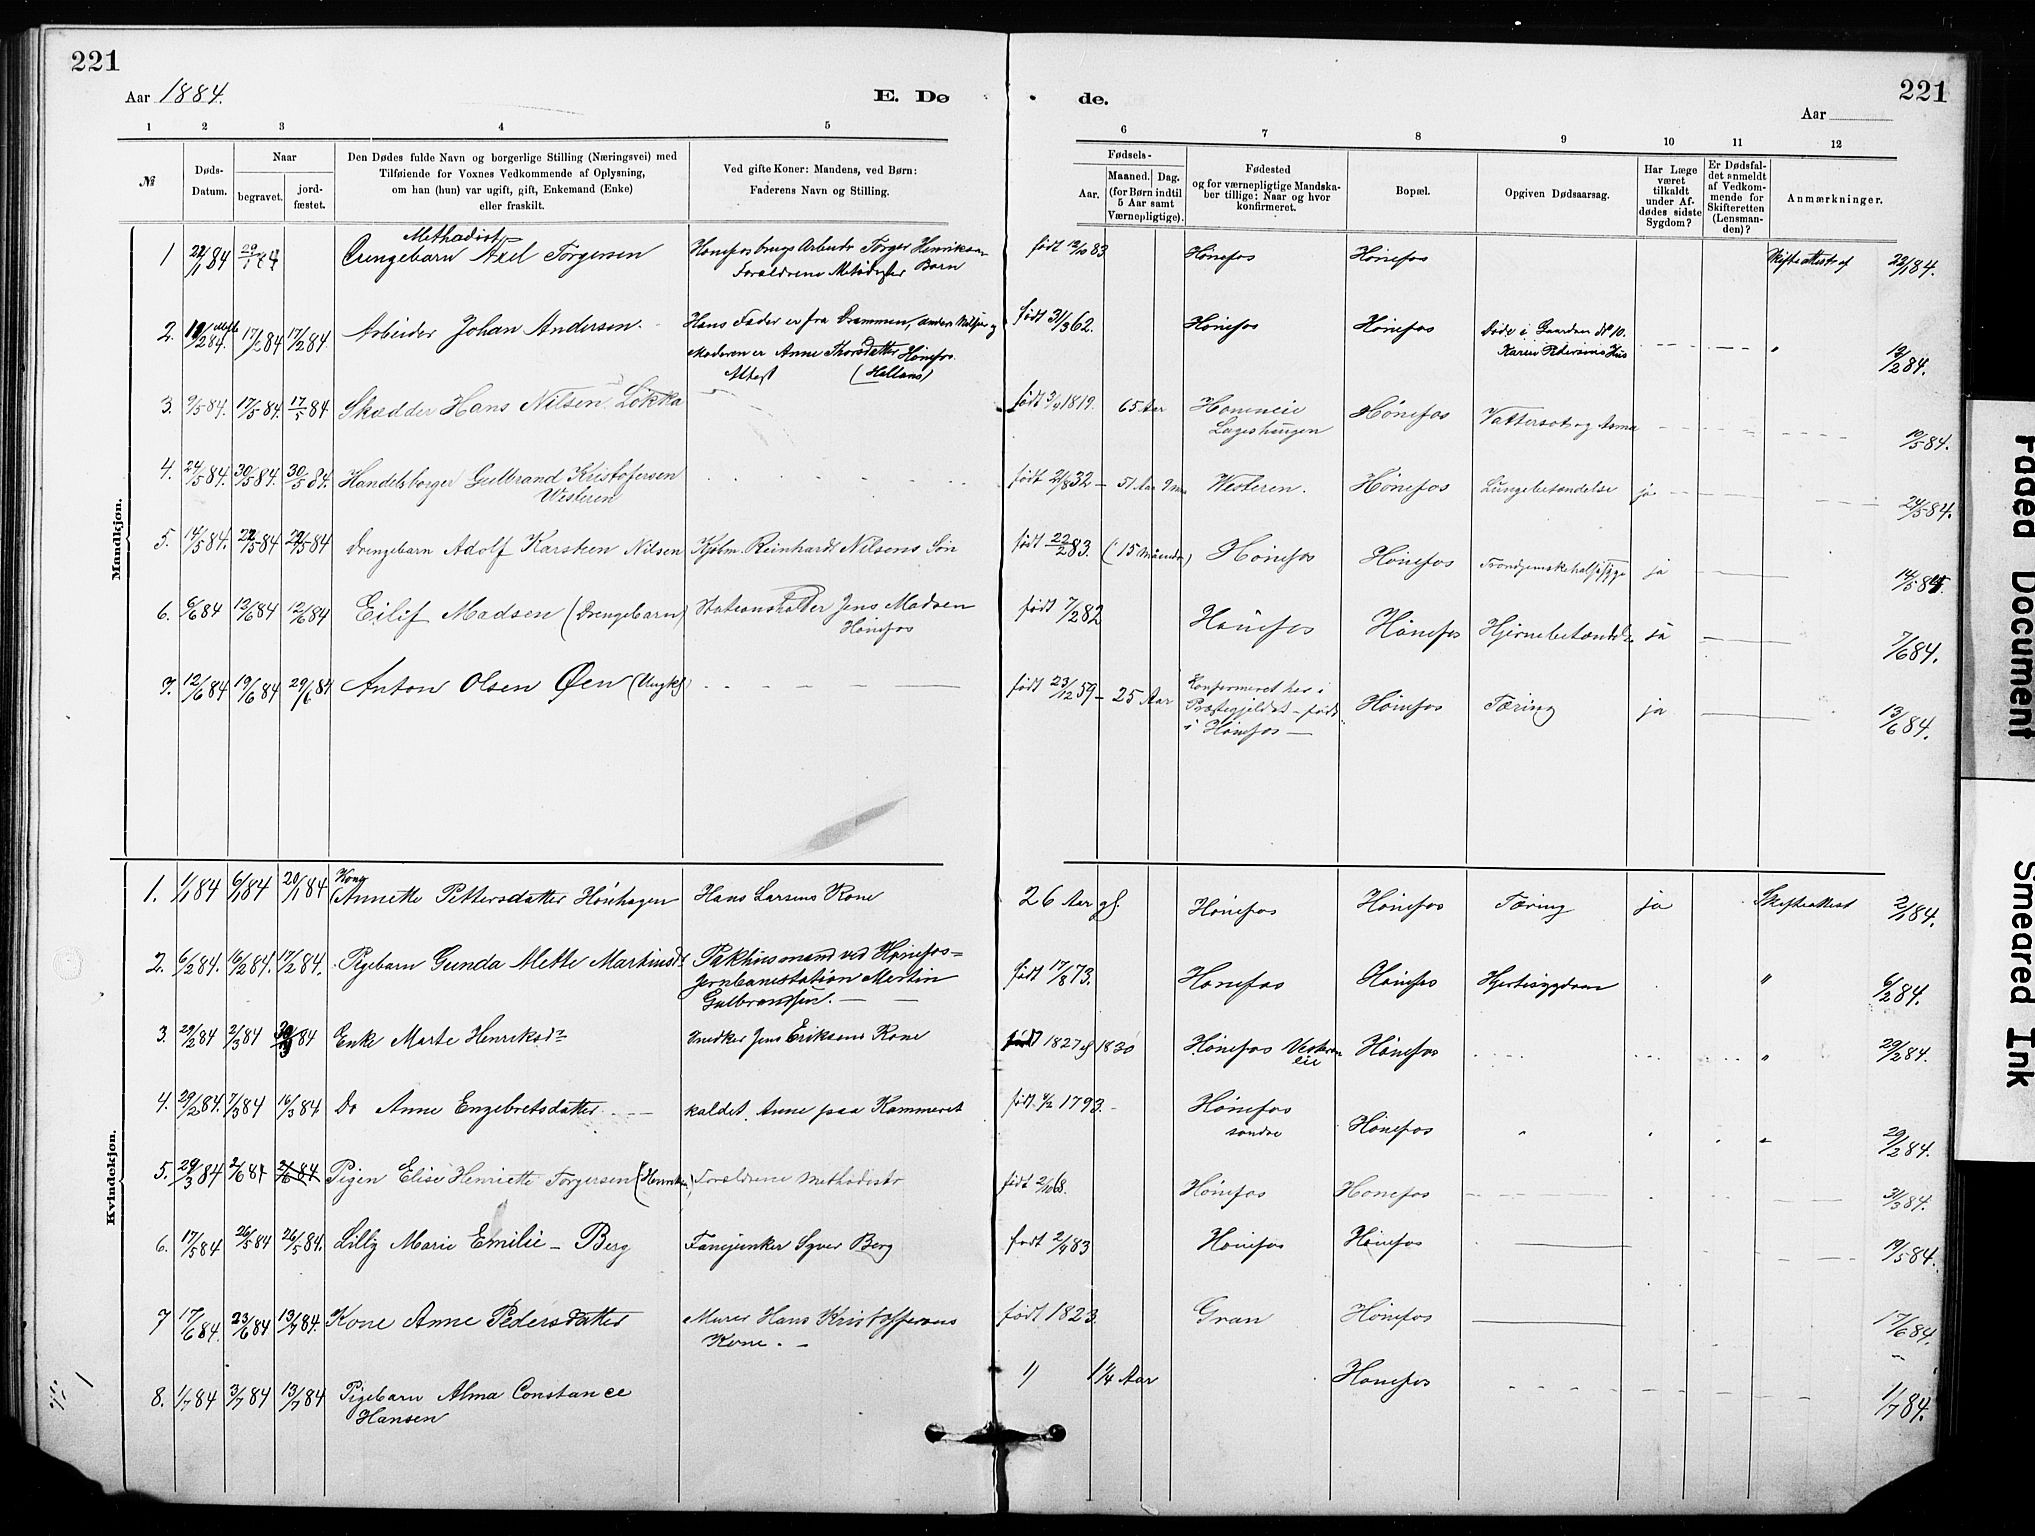 221
221
Aar 1884.
E. Dø
de.
Aar
1 2 3 4 5 6 7 8 9 10 11 12
№
Døds-
Datum.
Naar
begravet.
jord-
fæstet.
Den Dødes fulde Navn og borgerlige Stilling (Næringsvei) med
Tilføiende for Voxnes Vedkommende af Oplysning,
om han (hun) var ugift, gift, Enkemand (Enke)
eller fraskilt.
Ved gifte Koner: Mandens, ved Børn:
Faderens Navn og Stilling.
Fødsels-
Aar.
Maaned. Dag.
(for Børn indtil
5 Aar samt
Værnepligtige).
Fødested
og for værnepligtige Mandska-
ber tillige: Naar og hvor
konfirmeret.
Bopæl.
Opgiven Dødsaarsag.
Har Læge
været
tilkaldt
under Af-
dødes sidste
Sygdom?
Er Dødsfal-
det anmeldt
af Vedkom-
mende for
Skifteretten
(Lensman-
den)?
Anmærkninger.
Mandkjøn.
Methodist
1 22/1 84 Drengebarn Axel Torgersen Hønefos brugs Arbeider Torger Henriksen født 12/10 83 Hønefos Hønefos Skifteattest af 22/1 84.
Forældrene Børn
2. 17/2 84 17/2 84. Arbeider Johan Andersen. Hans Fader er fra Drammen, født 31/3 62. Hønefos Hønefos Døde i Gaarden № 10. 12/2 84.
Moderen er Anne Thorsdatter Hønefos. Karen Pedersens Hus
Attest
3. 9/5 84. 17/5 84. 17/5 84 Skrædder Hans Nilsen Løkka født 1819. 65 Aar Hønefos Vattersot og 10/5 84.
4. 24/5 84. 30/5 84. 30/5 84. Handelsborger Gulbrand Kristofersen født 32 – 51 Aar Westeren. Hønefos Lungebetændelse ja 24/5 84.
Westeren
5. 14/5 84. 22/5 84 22/5 84 Drengebarn Adolf Karsten Nilsen Kjøbm. Reinhardt Nilsens Søn født 22/2 83. (15 Maaneder) Hønefos Hønefos ja 14/5 84.
6. 6/6 84 12/6 84 12/6 84 Eilif Madsen (Drengebarn) Stationsholder Jens Madsen født 7/2 82 Hønefos Hønefos Hjernebetændelse ja 7/6 84.
Hønefos
7. 12/6 84 19/6 84 29/6 84 Anton Olsen Øen (Ungk) født 23/12 59 – 25 Aar Konfirmeret her i Hønefos Tæring ja 13/6 84.
Præstegjeldet – født
i Hønefos –
Kvindekjøn.
Kone
1. 1/1 84 6/1 84 20/1 84 Annette Pettersdatter Hønhagen Hans Larsens Kone 26 Aar gl. Hønefos Hønefos Tæring ja Skifteattest 2/1 84.
2. 6/2 84. 16/2 84. 17/2 84. Pigebarn Gunda Mette Martinsdr Pakhusmand ved Hønefos= født 17/8 73. Hønefos Hønefos Hjertesygdom " 6/2 84.
jernbanestation Martin
Gulbrandsen. –
3. 29/2 84 2/3 84 84 Enke Marte Henriksdr Snedker Jens Eriksens Kone født 1827 1830 Hønefos Hønefos " 29/2 84.
4. 29/2 84. 7/3 84 16/3 84 Do Anne Engebretsdatter kaldet Anne paa Kammeret født 1793. Hønefos Hønefos " 29/2 84.
søndre
5. 29/3 84 2/6 84 2/6 84 Pigen Elise Henriette Torgersen Forældrene Methodister født 68. Hønefos Hønefos 31/3 84.
6. 17/5 84 26/5 84 26/5 84. Lilly Marie Emilie – Berg Fanejunker Syver Berg født 2/4 83 Hønefos Hønefos 19/5 84.
7 17/6 84. 23/6 84 13/7 84. Kone Anne Pedersdatter Murer Hans Kristoffersens født 1823. Gran Hønefos 17/6 84.
Kone. –
8. 1/7 84 3/7 84 13/7 84 Pigebarn Alma Constance 1¼ Aar Hønefos 1/7 84.
Hansen
Faded Document
Smeared Ink